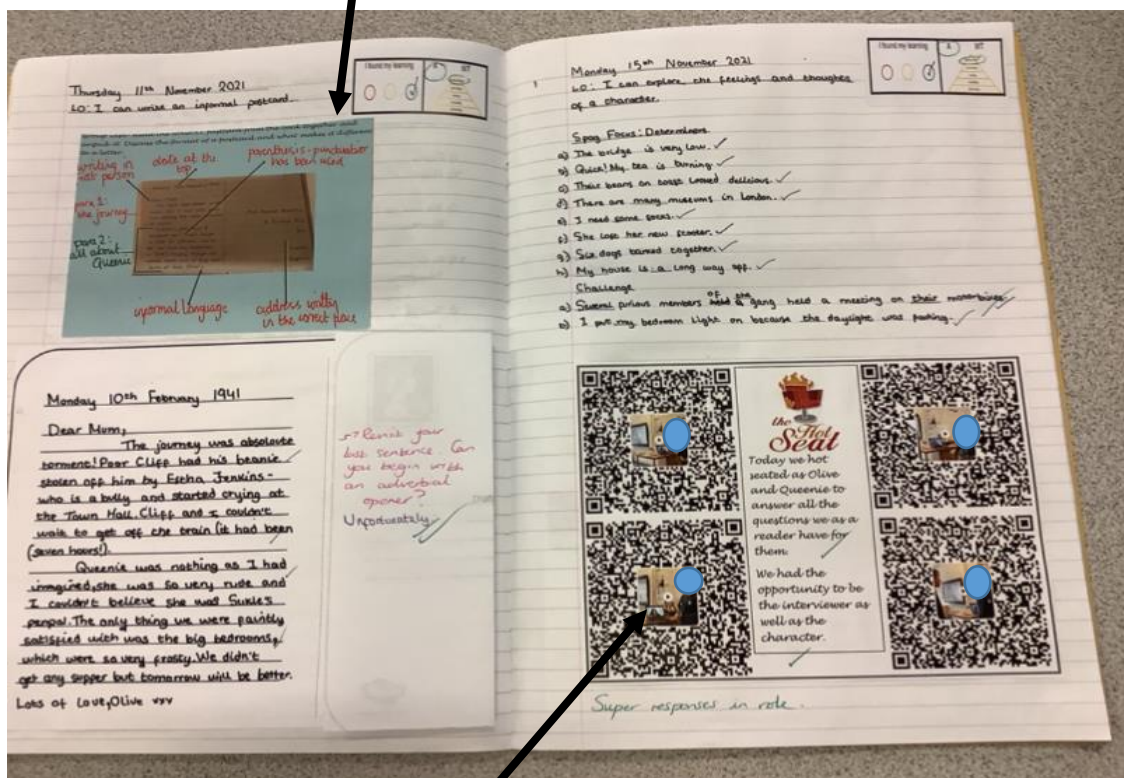 Thursday 11th November 2021
LO: I can write an informal postcard.
I found my learning
BIT
unpick it. Discuss the format of a postcard and what makes it different
to a letter.
writing in
1st person
date at the
top
parenthesis - punctuation
has been used
para 1:
the journey
para 2:
all about
Queenie
informal language
address written
in the correct place
Monday 10th February 1941
Dear Mum,
The journey was absoloute
torment! Poor Cliff had his beanie
stolen off him by Estha Jenkins -
who is a bully and started crying at
the Town Hall. Cliff and I couldn't
wait to get off the train (it had been
(seven hours!).
Queenie was nothing as I had
imagined, she was so very rude and
I couldn't believe she was Sukie's
penpal. The only thing we were faintly
satisfied with was the big bedrooms,
which were so very frosty. We didn't
get any supper but tomorrow will be better.
Lots of love, Olive xxx
Revisit your
last sentence. Can
you begin with
an adverbial
opener?
Unfortunately
Monday 15th November 2021
LO: I can explore the feelings and thoughts
of a character.
I found my learning
BIT
Spag Focus: Determiners
a) The bridge is very low.
b) Quick! My tea is burning.
c) Their beans on toast looked delicious.
d) There are many museums in London.
e) I need some socks.
f) She lost her new scooter.
g) Six dogs barked together.
h) My house is a long way off.
Challenge
of the
a) Several furious members held a gang held a meeting on their motorbikes
b) I put my bedroom light on because the daylight was fading.
the Hot
Seat
Today we hot
seated as Olive
and Queenie to
answer all the
questions we as a
reader have for
them.
We had the
opportunity to be
the interviewer as
well as the
character.
Super responses in role.